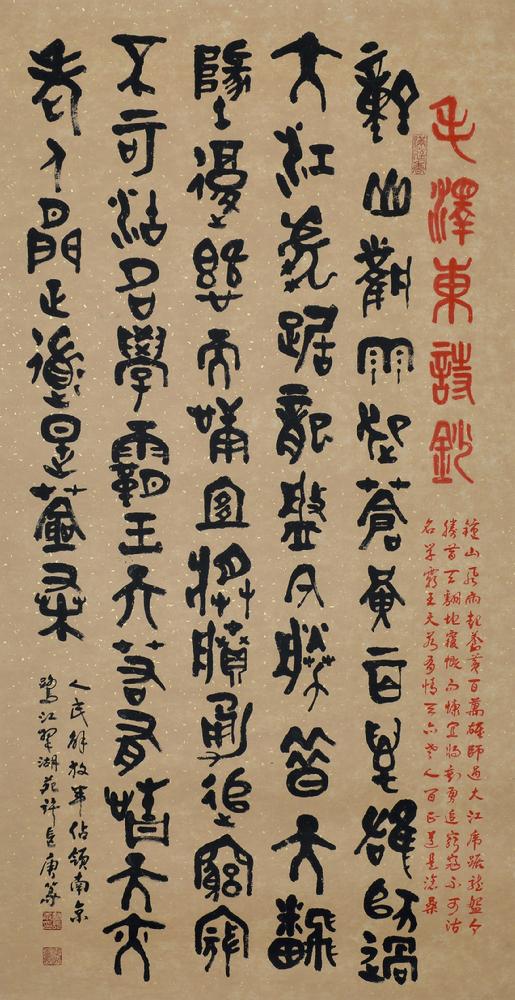 毛澤東詩鈔
鐘山風雨起蒼黃百萬雄師過大江虎踞龍盤今
勝昔天翻地覆慨而慷宜將剩勇追窮寇不可沽
名学霸王天若有情天亦老人間正道是滄桑
鐘山風雨起蒼黃百萬雄師過
大江虎踞龍盤今勝昔天翻
地覆慨而慷宜將賸勇追窮寇
不可沽名學霸王天若有情天亦
老人間正道是滄桑
人民解放軍佔領南京
鷺江翠湖苑許長庚篆